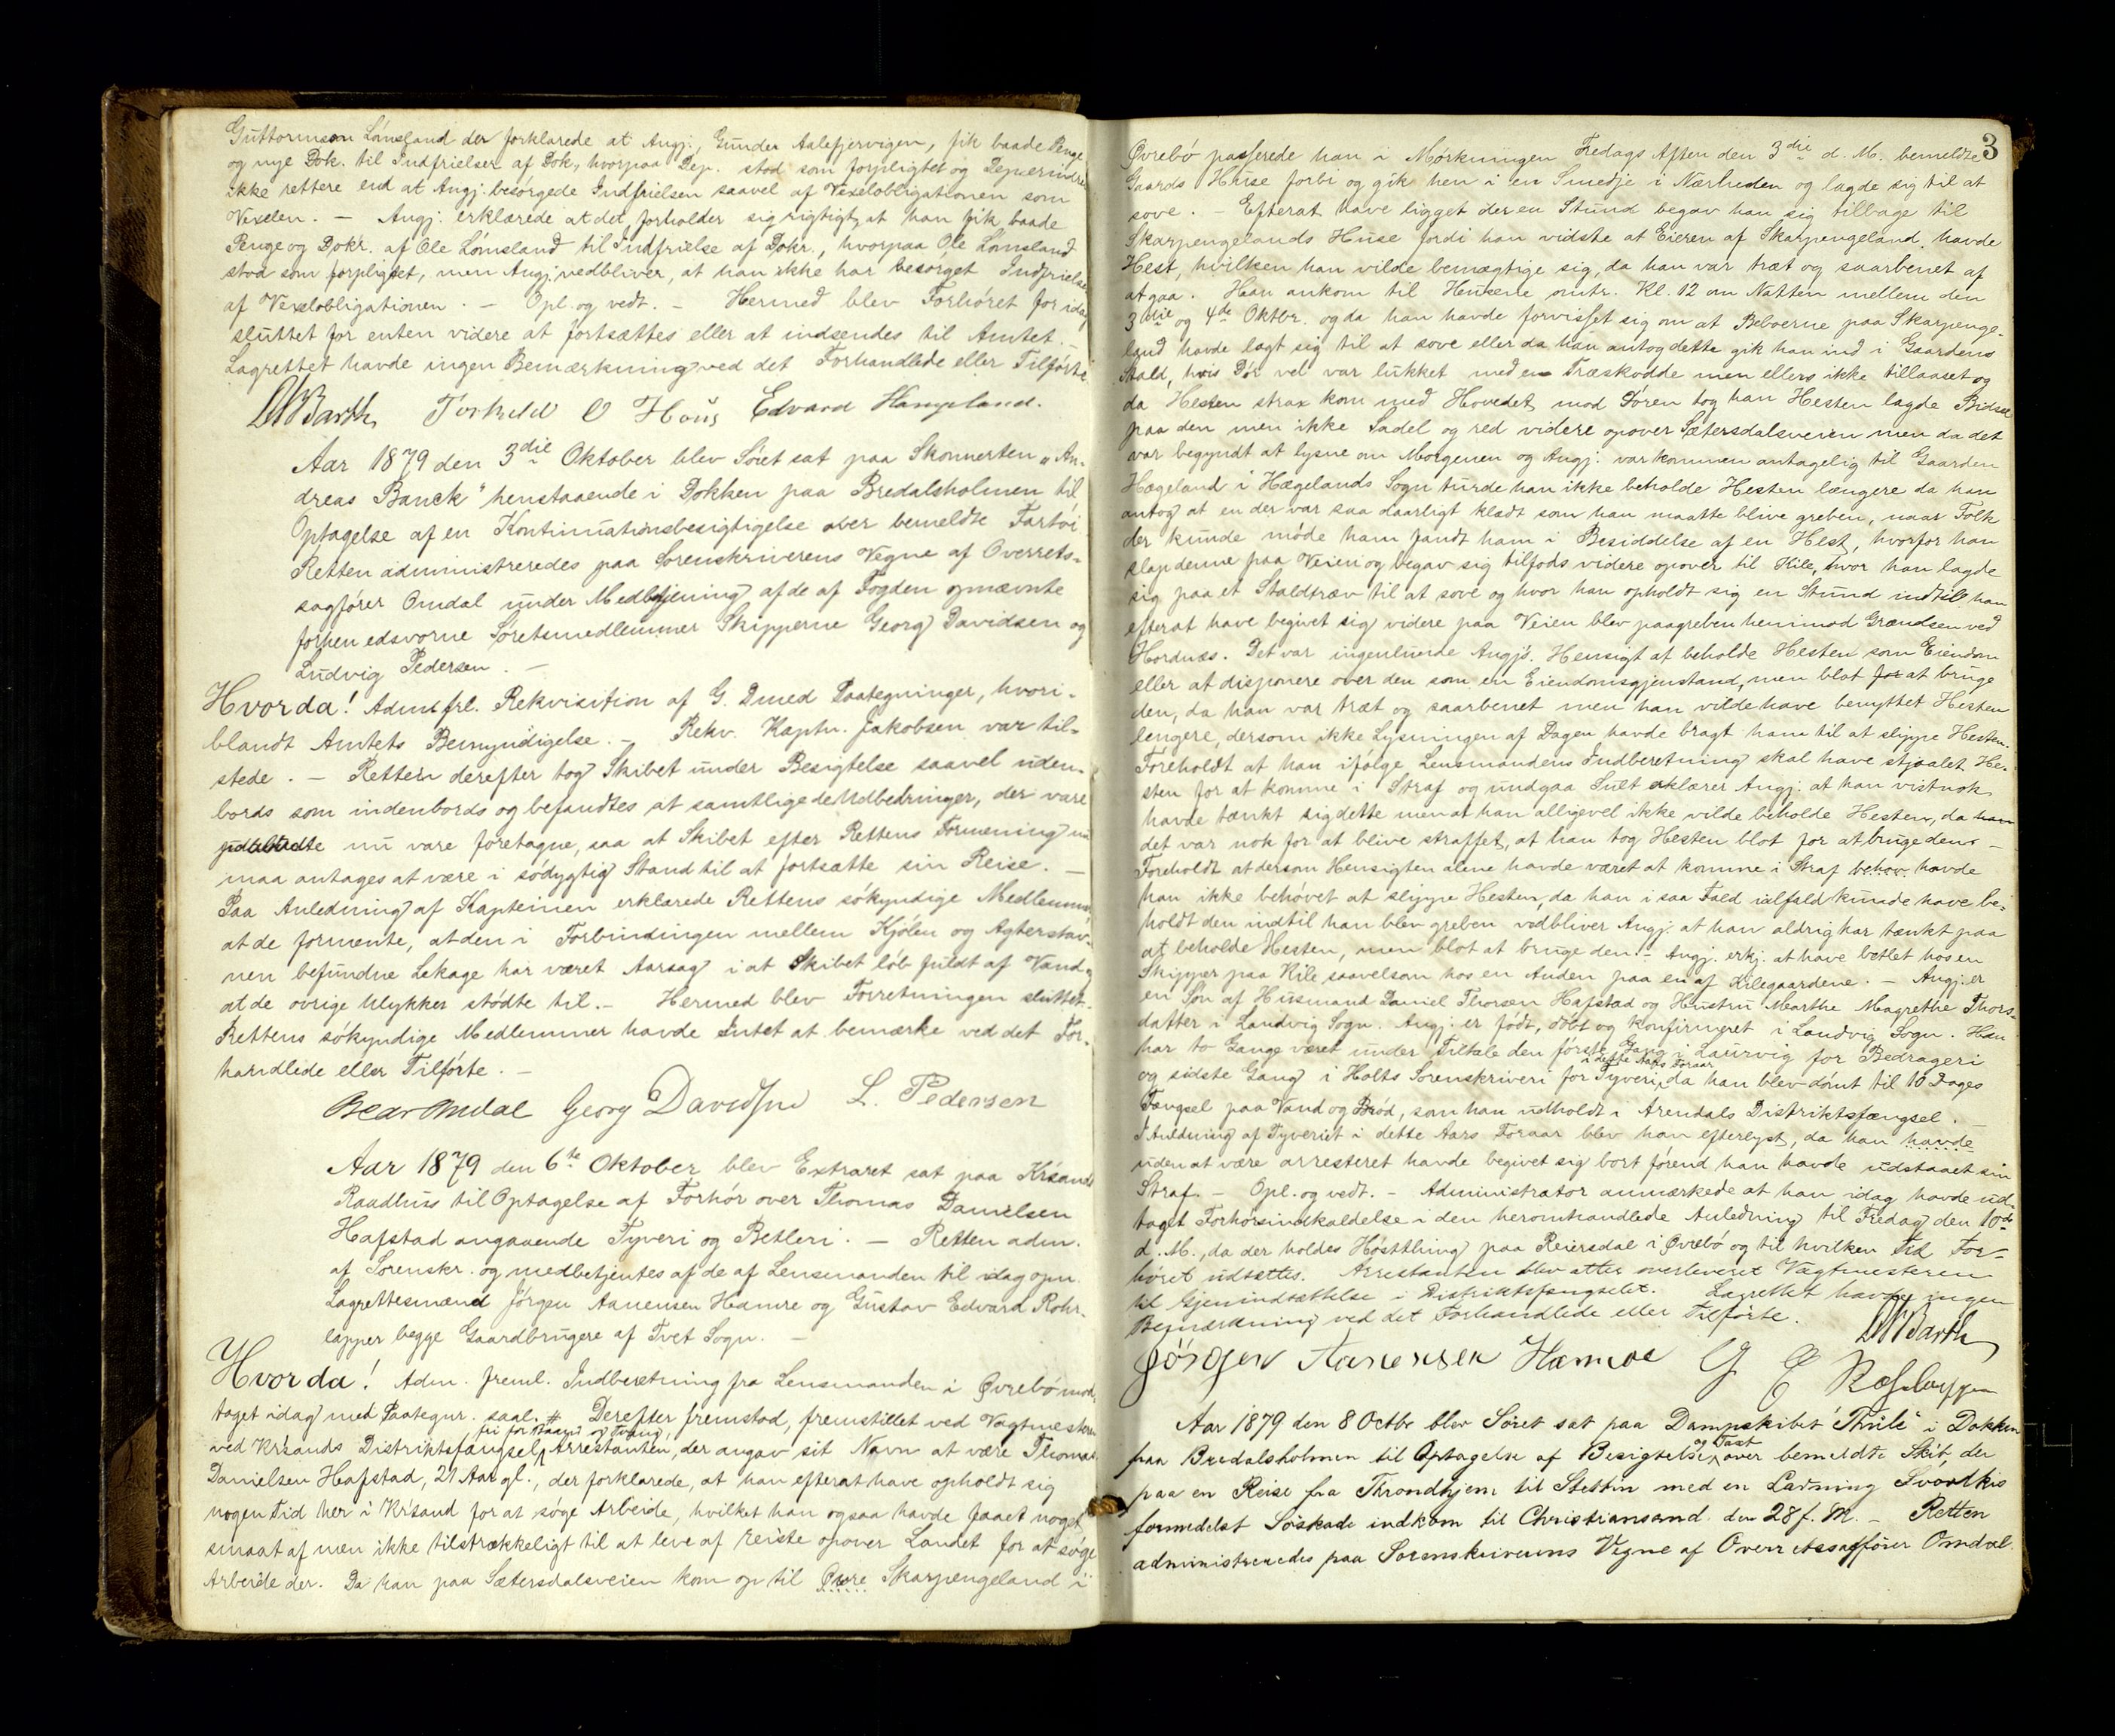 Guttormson Lönsland der forklarede at Angj., Gunder Aalefjervigen, fik baade Penge
og nye Dok. til Indfrielser af Dok, hvorpaa Dep. stod som forpligtet og Dep erindrer
ikke rettere end at Angj. besörgede Indfrielsen saavel af Vexelobligationen som
Vexelen. – Angj. erklærede at det forholder sig rigtigt, at han fik baade
Penge og Dokr. af Ole Lönsland til Indfrielse af Dokr., hvorpaa Ole Lönsland
stod som forpligtet, men Angj. vedbliver, at han ikke har besörget Indfrielse
af Vexelobligationen. – Opl. og vedt. – Hermed blev Forhöret for idag
sluttet for enten videre at fortsættes eller at indsendes til Amtet. –
Lagrettet havde ingen Bemærkning ved det Forhandlede eller Tilförte
Barth Torkeld O Hous Edvard Hangeland.
Aar 1879 den 3die Oktober blev Söret sat paa Skonnerten „An-
dreas Banck“ henstaaende i Dokken paa Bredalsholmen til
Optagelse af en Kontinuationsbesigtigelse over bemeldte Fartöi
Retten administreredes paa Sorenskriverens Vegne af Overrets-
sagförer Omdal under Medbetjening af de af Fogden opnævnte
forhen edsvorne Söretsmedlemmer Skipperne Georg Davidsen og
Ludvig Pedersen. –
Hvorda! Adm. frl. Rekvisition af G. D med Paategninger, hvori-
blandt Amtets Bemyndigelse. – Rekv. Kaptn. Jakobsen var til-
stede. – Retten derefter tog Skibet under Besigtelse saavel uden-
bords som indenbords og befandtes at samtlige de Udbedringer, der vare
nu vare foretagne, saa at Skibet efter Rettens Formening nu
maa antages at være i södygtig Stand til at fortsætte sin Reise. –
Paa Anledning af Kapteinen erklærede Rettens sökyndige Medlemmer
at de formente, at den i Forbindingen mellem Kjölen og Agterstav-
nen befundne Lekage har været Aarsag i at Skibet löb fuldt af Vand og
at de ovrige Ulykker stödte til. – Hermed blev Forretningen sluttet.
Rettens sökyndige Medlemmer havde Intet at bemærke ved det For-
handlede eller Tilförte. –
Omdal Georg Davidsen L. Pedersen
Aar 1879 den 6te Oktober blev Extraret sat paa Krsands
Raadhus til Optagelse af Forhör over Thomas Danielsen
Hafstad angaaende Tyveri og Betleri. – Retten adm.
af Sorenskr. og medbetjentes af de af Lensmanden til idag opn.
Lagrettesmænd Jörgen Aanensen Hamre og Gustav Edvard Rohr-
lapper begge Gaardbrugere af Tvet Sogn. –
Hvorda! Adm. freml. Indberetning fra Lensmanden i Øvrebö mod-
taget idag med Paategnr. saal. # Derefter fremstod, fremstillet ved Vagtmesteren
fri for Baand og Tvang,
ved Krsands Distriktsfængsel, Arrestanten, der angav sit Navn at være Thomas
Danielsen Hafstad, 21 Aar gl., der forklarede, at han efterat have opholdt sig
nogen Tid her i Krsand for at söge Arbeide, hvilket han ogsaa havde faaet noget
smaat af men ikke tilstrækkeligt til at leve af reiste opover Landet for at söge
Arbeide der. Da han paa Sætersdalsveien kom op til Øvre Skarpengeland i
3
Øvrebö passerede han i Mörkningen Fredags Aften den 3die d. M. bemeldte
Gaards Huse forbi og gik hen i en Smedje i Nærheden og lagde sig til at
sove. – Efterat have ligget der en Stund begav han sig tilbage til
Skarpengelands Huse fordi han vidste at Eieren af Skarpengeland havde
Hest, hvilken han vilde bemægtige sig, da han var træt og saarbenet af
at gaa. Han ankom til Husene omtr. Kl. 12 om Natten mellem den
3die og 4de Oktbr. og da han havde forvisset sig om at Beboerne paa Skarpenge-
land havde lagt sig til at sove eller da han antog dette gik han ind i Gaardens
Stald, hvis Dör vel var lukket med en Træskodde men ellers ikke tillaaset og
da Hesten strax kom med Hovedet mod Dören tog han Hesten lagde Bidsel
paa den men ikke Sadel og red videre opover Sætersdalsveien men da det
var begyndt at lysne om Morgenen og Angj. var kommen antagelig til Gaarden
Hægeland i Hægelands Sogn turde han ikke beholde Hesten længere da han
antog at en der var saa daarligt klædt som han maatte blive greben, naar Folk
der kunde möde ham fandt ham i Besiddelse af en Hest, hvorfor han
slap denne paa Veien og begav sig tilfods videre opover til Kile, hvor han lagde
sig paa et Staldtræv til at sove og hvor han opholdt sig en Stund indtil han
efterat have begivet sig videre paa Veien blev paagreben henimod Grændsen ved
Hordnæs. Det var ingenlunde Angj's. Hensigt at beholde Hesten som Eiendom
eller at disponere over den som en Eiendomsgjenstand, men blot for at bruge
den, da han var træt og saarbenet men han vilde have benyttet Hesten
lengere, dersom ikke Lysningen af Dagen havde bragt ham til at slippe Hesten.
Foreholdt at han ifölge Lensmandens Indberetning skal have stjaalet He-
sten for at komme i Straf og undgaa Sult erklærer Angj. at han vistnok
havde tænkt sig dette men at han alligevel ikke vilde beholde Hesten, da han
det var nok for at blive straffet, at han tog Hesten blot for at bruge den. –
Foreholdt at dersom Hensigten alene havde været at komme i Straf behov havde
han ikke behövet at slippe Hesten, da han i saa Fald ialfald kunde have be-
holdt den indtil han blev greben vedbliver Angj. at han aldrig har tænkt paa
at beholde Hesten, men blot at bruge den. – Angj. erkj. at have betlet hos en
Skipper paa Kile saavelsom hos en Anden paa en af Kilegaardene. – Angj. er
en Sön af Husmand Daniel Thorsen Hafstad og Hustru Marthe Magrethe Thors-
datter i Landvig Sogn. Angj. er födt, döbt og konfirmeret i Landvig Sogn. Han
har to Gange været under Tiltale den förste Gang i Laurvig for Bedrageri
i dette Aars Foraar
og sidste Gang i Holts Sorenskriveri for Tyveri, da han blev dömt til 10 Dages
Fængsel paa Vand og Bröd, som han udholdt i Arendals Distriktsfængsel. –
I Anledning af Tyveriet i dette Aars Foraar blev han efterlyst, da han havde
uden at være arresteret havde begivet sig bort förend han havde udstaaet sin
Straf. – Opl. og vedt. – Administrator anmærkede at han idag havde ud-
taget Forhörsindkaldelse i den heromhandlede Anledning til Fredag den 10de
d. M., da der holdes Höstthing paa Reiersdal i Øvrebö og til hvilken Tid For-
höret udsættes. Arrestanten blev atter overleveret Vagtmesteren
til Gjenindsættelse i Distriktsfængselet. Lagrettet havde ingen
Bemærkning ved det Forhandlede eller Tilförte.
Barth
Jörgen Aanensen Hamre G E
Aar 1879 den 8 Octbr blev Söret sat paa Dampskibet „Thule“ i Dokken
og Taxt
paa Bredalsholmen til Optagelse af Besigtelse over bemeldte Skib, der
paa en Reise fra Throndhjem til Stettin med en Ladning Svovlkis
formedelst Söskade indkom til Christiansand den 28 f. M. – Retten
administreredes paa Sorenskriverens Vegne af Overretssagförer Omdal.